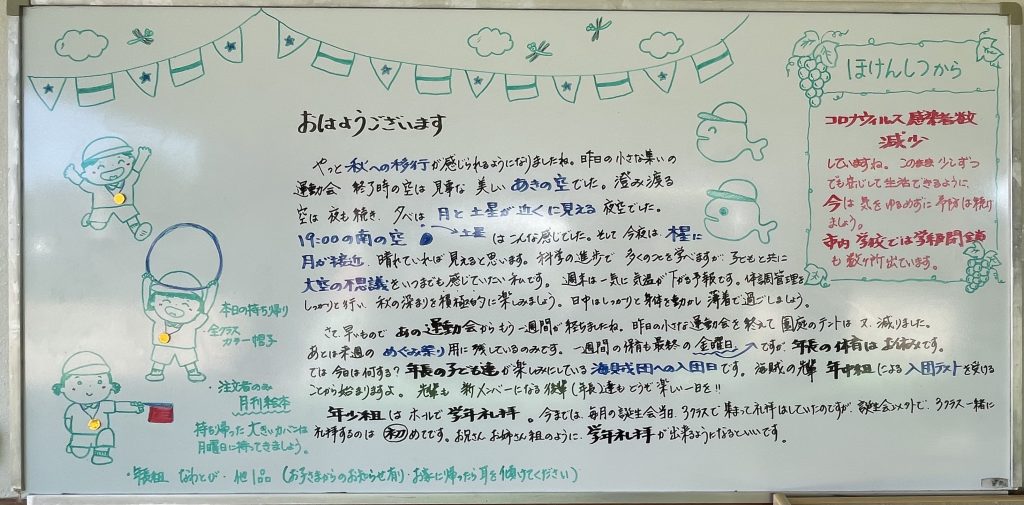 おはようございます
やっと秋への移行が感じられるようになりましたね。昨日の小さな集いの
運動会 終了時の空は見事な 美しい あきの空でした。澄み渡る
空は 夜も続き、夕べは 月と土星が近くに見える 夜空でした。
→土星
19:00の南の空 はこんな感じでした。そして 今夜は、木星に
月が接近 晴れていれば 見えると思います。科学の進歩で 多くのことを学べますが、子どもと共に
大空の不思議をいつまでも感じていたい私です。 週末は一気に気温が下がる予報です。体調管理を
しっかりと行い 秋の深まりを積極的に楽しみましょう。日中はしっかりと身体を動かし 薄着で過ごしましょう。
さて、早いもので あの運動会からもう一週間が経ちましたね。昨日の小さな運動会を終えて 園庭のテントは 又、減りました。
あとは来週の めぐみ祭り用に残しているのみです。一週間の保育も最終の金曜日 ですが、年長の保育はお休みです。
では 今日は何する？年長の子ども達が楽しみにしている 海賊戌団への入団日です。海賊の先輩 年中組による 入団テストを受ける
ことから始まりますよ。先輩も 新メンバーになる後輩(年長)達も どうぞ楽しい一日を!!
年少組は ホールで 学年礼拝。今までは、毎月の誕生会当日、3クラスで集まって礼拝はしていたのですが、誕生会以外で、3クラス一緒に
礼拝するのは 初めてです。お兄さん お姉さん組のように、学年礼拝が出来るようになるといいです。
本日の持ち帰り
全クラス
カラー帽子
注文者のみ
月刊絵本
持ち帰った大きいカバンは
月曜日に持ってきましょう。
・年長組 なわとび・他1品 (お子さまからのお知らせ有り・お家に帰ったら耳を傾けてください)
ほけんしつから
コロナウィルス 感染者数
減少
していますね。このまま 少しずつ
でも安心して生活できるように、
今は 気をゆるめずに予防は続け
ましょう。
市内 学校では学級閉鎖
も数ケ所出ています。